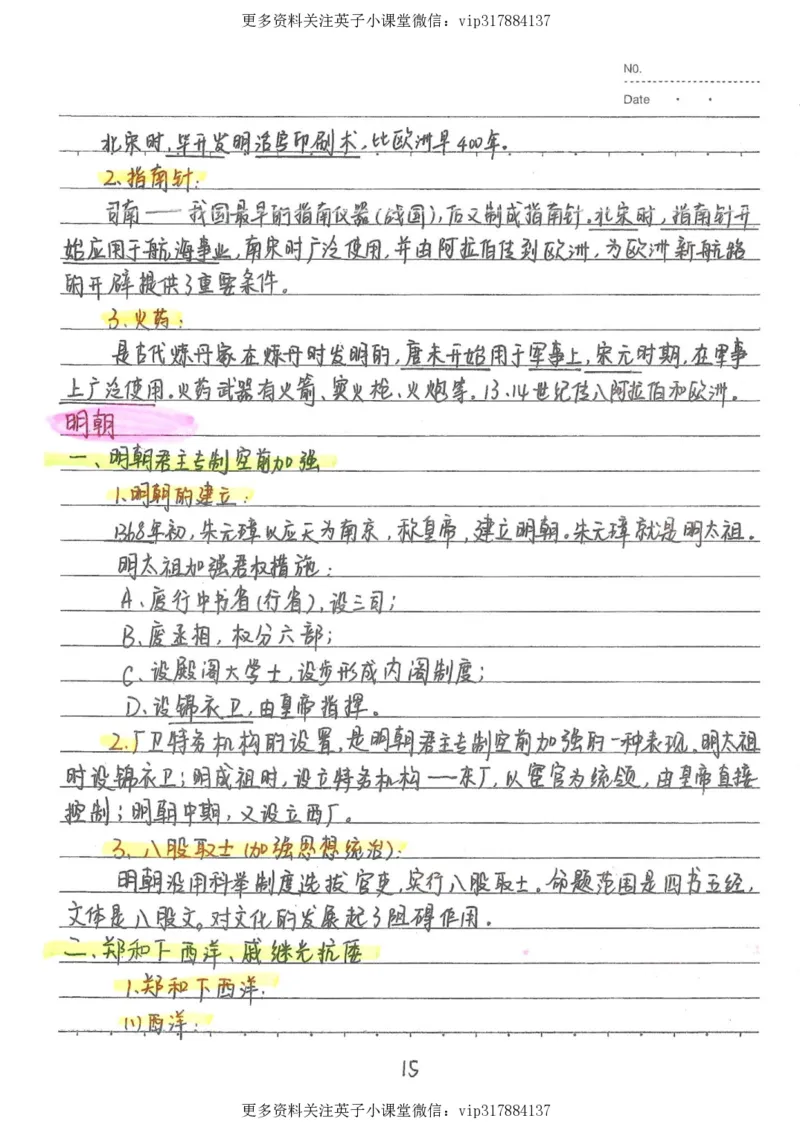 更多资料关注英子小课堂微信：vip317884137
NO.
Date · ·
北宋时，毕升发明活字印刷术，比欧洲早400年。
2.指南针：
司南——我国最早的指南仪器(战国)，后又制成指南针。北宋时，指南针开
始应用于航海事业，南宋时广泛使用，并由阿拉伯传到欧洲，为欧洲新航路
的开辟提供了重要条件。
3.火药：
是古代炼丹家在炼丹时发明的，唐末开始用于军事上，宋元时期，在军事
上广泛使用。火药武器有火箭、突火枪、火炮等。13、14世纪传入阿拉伯和欧洲。
明朝
一、明朝君主专制空前加强
1.明朝的建立：
1368年初，朱元璋以应天为南京，称皇帝，建立明朝。朱元璋就是明太祖。
明太祖加强君权措施：
A、废行中书省(行省)，设三司；
B、废丞相，权分六部；
C、设殿阁大学士，设步形成内阁制度；
D、设锦衣卫，由皇帝指挥。
2.厂卫特务机构的设置，是明朝君主专制空前加强的一种表现。明太祖
时设锦衣卫；明成祖时，设立特务机构——东厂，以宦官为统领，由皇帝直接
控制；明朝中期，又设立西厂。
3、八股取士(加强思想统治)：
明朝沿用科举制度选拔官吏，实行八股取士。命题范围是四书五经，
文体是八股文。对文化的发展起了阻碍作用。
二、郑和下西洋、戚继光抗倭
1.郑和下西洋：
(1)西洋：
15
更多资料关注英子小课堂微信：vip317884137